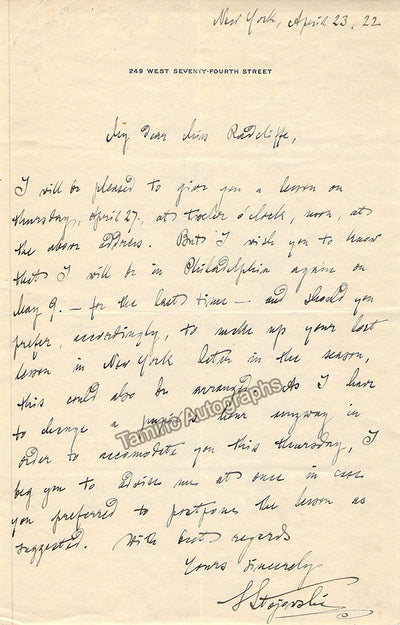 New York, April 23, 22
249 WEST SEVENTY-FOURTH STREET
My dear Miss Radcliffe,
I will be pleased to give you a lesson on
thursday, april 27., at twelve o'clock, noon, at
the above address. But I wish you to know
that I will be in Philadelphia again on
May 9. — for the last time — and should you
prefer, accordingly, to make up your lost
lesson in New York later in the season,
this could also be arranged. As I have
to change a pupil's hour anyway in
Tamino Autographs
order to accomodate you this thursday, I
beg you to advise me at once in case
you preferred to postpone the lesson as
suggested. With best regards
Yours sincerely
S Stojowski